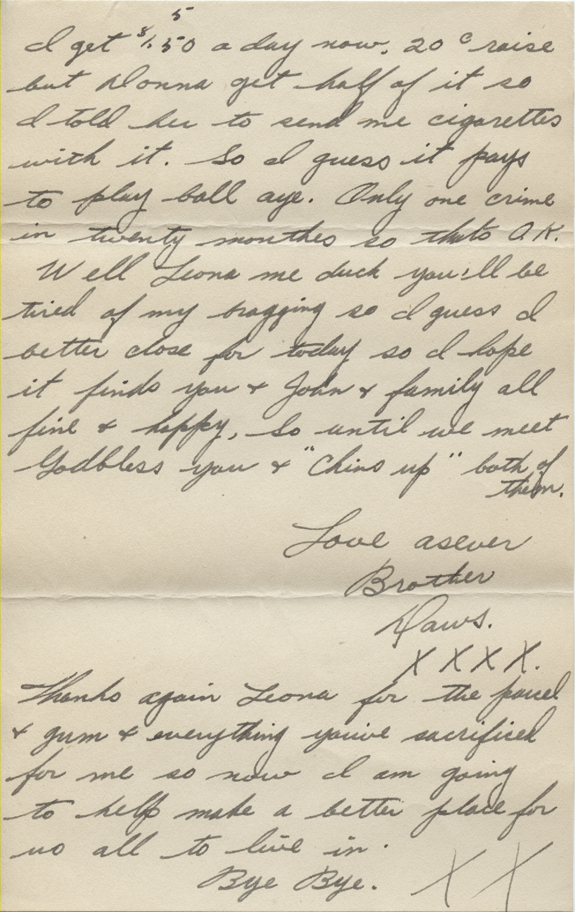 5
I get $1.50 a day now. 20c raise
but Donna get half of it so
I told her to send me cigarettes
with it. So I guess it pays
to play ball aye. Only one crime
in twenty monthes so thats O.K.
Well Leona me duck you'll be
tired of my bragging so I guess I
better close for today so I hope
it finds you & John & family all
fine & happy, So until we meet
Godbless you & "Chins up" both of
them.
Love asever
Brother
Daws.
X X X X.
Thanks again Leona for the parcel
& gum & everything you've sacrificed
for me so now I am going
to help make a better place for
us all to live in.
Bye Bye. X X